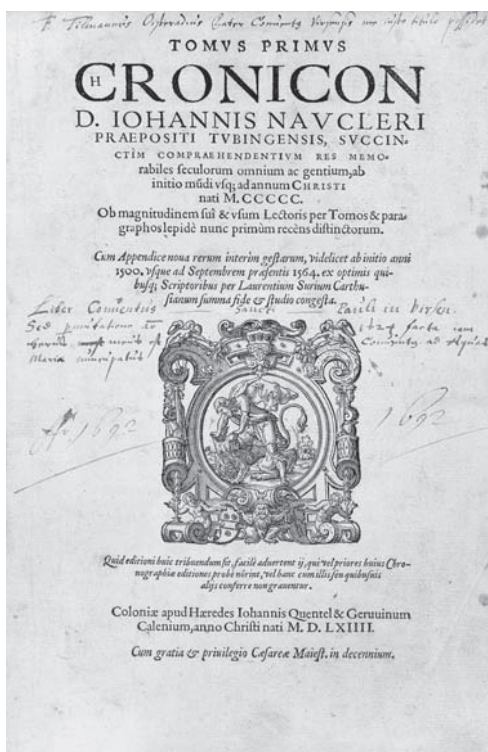 F. Tilmannus
TOMVS PRIMVS
CHRONICON
D. IOHANNIS NAVCLERI
PRAEPOSITI TVBINGENSIS, SVCCIN-
CTIM COMPRAEHENDENTIVM RES MEMO-
rabiles seculorum omnium ac gentium, ab
initio mūdi vsq; ad annum CHRISTI
nati M. CCCCC.
Ob magnitudinem sui & vsum Lectoris per Tomos & para-
graphos lepidè nunc primùm recèns distinctorum.
Cum Appendice noua rerum interim gestarum, videlicet ab initio anni
1500. vsque ad Septembrem præsentis 1564. ex optimis qui-
busq; Scriptoribus per Laurentium Surium Carthu-
sianum summa fide & studio congesta.
Liber Conuentus Sancti Pauli in
Sed
Maria
1692 1692
Quid editioni huic tribuendum sit, facilè aduertent ij, qui vel priores huius Chro-
nographiæ editiones probè nôrint, vel hanc cum illis seu quibusuis
alijs conferre non grauentur.
Coloniæ apud Hæredes Iohannis Quentel & Geruuinum
Calenium, anno Christi nati M. D. LXIIII.
Cum gratia & priuilegio Cæsareæ Maiest. in decennium.